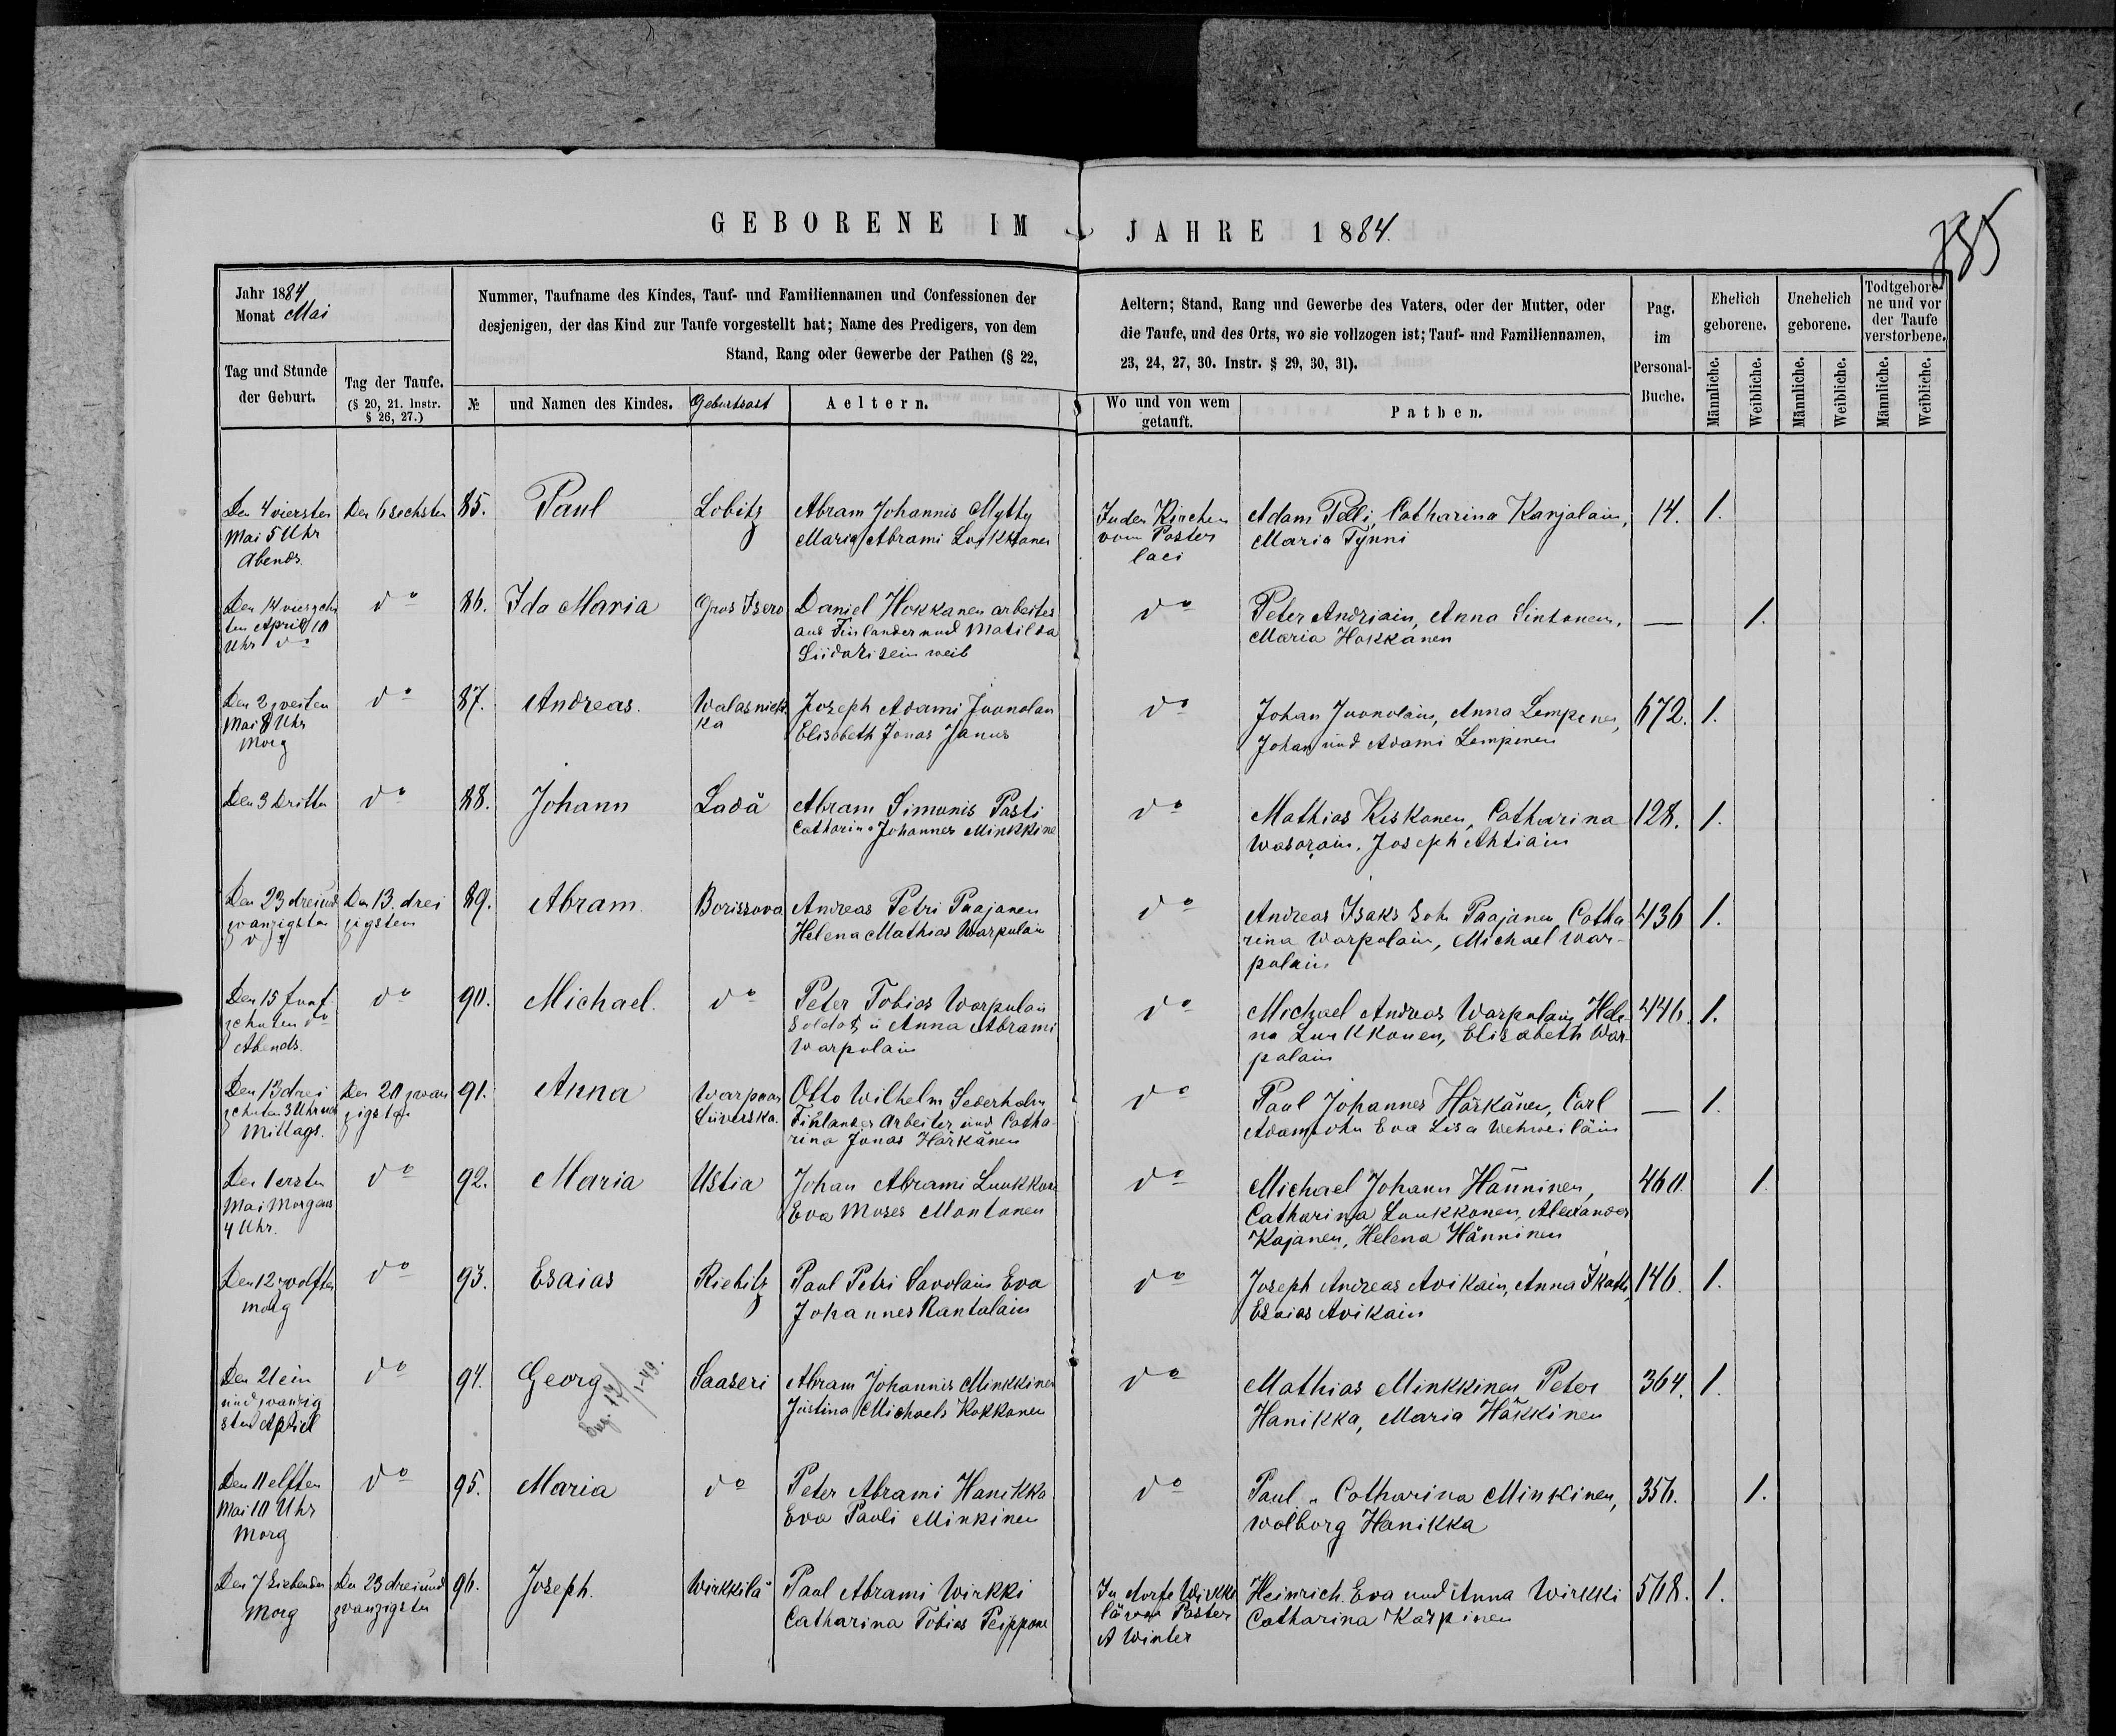 GEBORENE IM JAHRE 1884.
385
Jahr 1884
Monat Mai
Tag und Stunde
der Geburt.
Tag der Taufe.
(§ 20, 21. Instr.
§ 26, 27.)
Nummer, Taufname des Kindes, Tauf- und Familiennamen und Confessionen der
desjenigen, der das Kind zur Taufe vorgestellt hat; Name des Predigers, von dem
Stand, Rang oder Gewerbe der Pathen (§ 22,
№
und Namen des Kindes.
Geburtsort
Aeltern.
Aeltern; Stand, Rang und Gewerbe des Vaters, oder der Mutter, oder
die Taufe, und des Orts, wo sie vollzogen ist; Tauf- und Familiennamen,
23, 24, 27, 30. Instr. § 29, 30, 31).
Wo und von wem
getauft.
Pathen.
Pag.
im
Personal-
Buche.
Ehelich
geborene.
Unehelich
geborene.
Todtgebore-
ne und vor
der Taufe
verstorbene.
Männliche.
Weibliche.
Männliche.
Weibliche.
Männliche.
Weibliche.
Den 4 viersten
Mai 5 Uhr
Abends.
Den 6 sechsten
85.
Paul
Lobitz
Abram Johannis Mytty
Maria Abrami
In der Kirchen
vom Paster
laci
Adam Pelli, Catharina Karjalain,
Maria Tynni
14.
1.
Den 14 vierzehn
ten April 10
Uhr do
do
86.
Ida Maria
Gros Isero
Daniel Hokkanen arbeiter
aus Finlander und Matilda
Siidari sein weib
do
Peter Andriain, Anna Sintonen,
Maria Hokkanen
—
1.
Den 2 zweiten
Mai 8 Uhr
Morg
do
87.
Andreas.
Walasnich
ka
Joseph Adami Juonolan
Elisabeth Jonas Janus
do
Johan Juonolain, Anna Lempinen,
Johan und Adami Lempinen
672.
1.
Den 3 Dritten
do
88.
Johann
Ladä
Abram Simonis Pasti
Catharina Johannes Minkkine
do
Mathias Kiskonen, Catharina
Wasarain. Joseph Ahtiain
128.
1.
Den 23 dreiund
zwanzigsten
do
Den 13. drei
zigsten
89.
Abram
Borissova
Andreas Petri Paajanen
Helena Mathias Warpulain
do
Andreas Isaks Soh Paajanen Catha
rina Warpolain, Michael War-
polain
436
1.
Den 15 funf
zehnten do
Abends.
do
90.
Michael.
do
Peter Tobias Warpulain
Soldat u Anna Abrami
Warpulain
do
Michael Andreas Warpulain Hele
na Luukkonen, Elisabeth War-
polain
446.
1.
Den 13 drei
zehnten 3 Uhr nach
Mittags.
Den 20 zwan
zigsten
91.
Anna
Otto Wilhelm Sederholm
Finlander Arbeiter und Catha-
rina Jonas Härkänen
do
Paul Johannes Härkänen, Carl
Adamsohn Eva Lisa Wehweiläin
—
1.
Den 1 ersten
Mai Morgans
4 Uhr.
do
92.
Maria
Ustia
Johan Abrami Luukkon
Eva Moses Montonen
do
Michael Johann Hänninen,
Catharina Luukkonen, Alexander
Kajanen, Helena Hänninen
460.
1
Den 12 zwolften
morg
do
93.
Esaias
Riebitz
Paul Petri Savolain Eva
Johannes Rantalain
do
Joseph Andreas Avikain, Anna
Esaias Avikain
146.
1.
Den 21 ein
und zwanzig
sten April
do
94.
Georg
17/1-49.
Saaseri
Abram Johannis Minkkinen
Justina Michaels Kokkonen
do
Mathias Minkkinen Peter
Hanikka, Maria Häkkinen
364.
1.
Den 11 elften
Mai 10 Uhr
Morg
do
95.
Maria
do
Peter Abrami Hanikka
Eva Pauli Minkinen
do
Paul " Catharina Minkinen,
Wolborg Hanikka
356.
1.
Den 7 Siebenden
Morg
Den 23 dreiund
zwanzigsten
96.
Joseph.
Wirkkilä
Paul Abrami Wirkki
Catharina Tobias Peippone
In dorfe Wirkki
lä von Paster
A Winter
Heinrich. Eva und Anna Wirkki
Catharina Karpinen
508.
1.